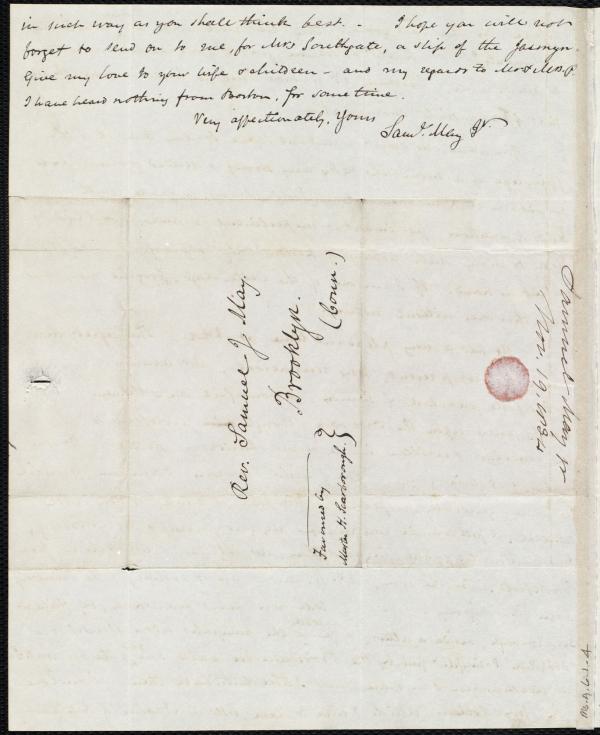 in such way as you shall think best. - I hope you will not
forget to send on to me, for Mrs Southgate, a slip of the Jasmyn.
Give my love to your wife & children - and my regards to Mr & Mrs P.
I have heard nothing from Boston, for some time.
Very affectionately, Yours
Saml. May Jr.
Rev. Samuel J. May.
Brooklyn.
(Conn.)
Favoured by
H. Scarborough.
Samuel May Jr
Nov. 19. 1834